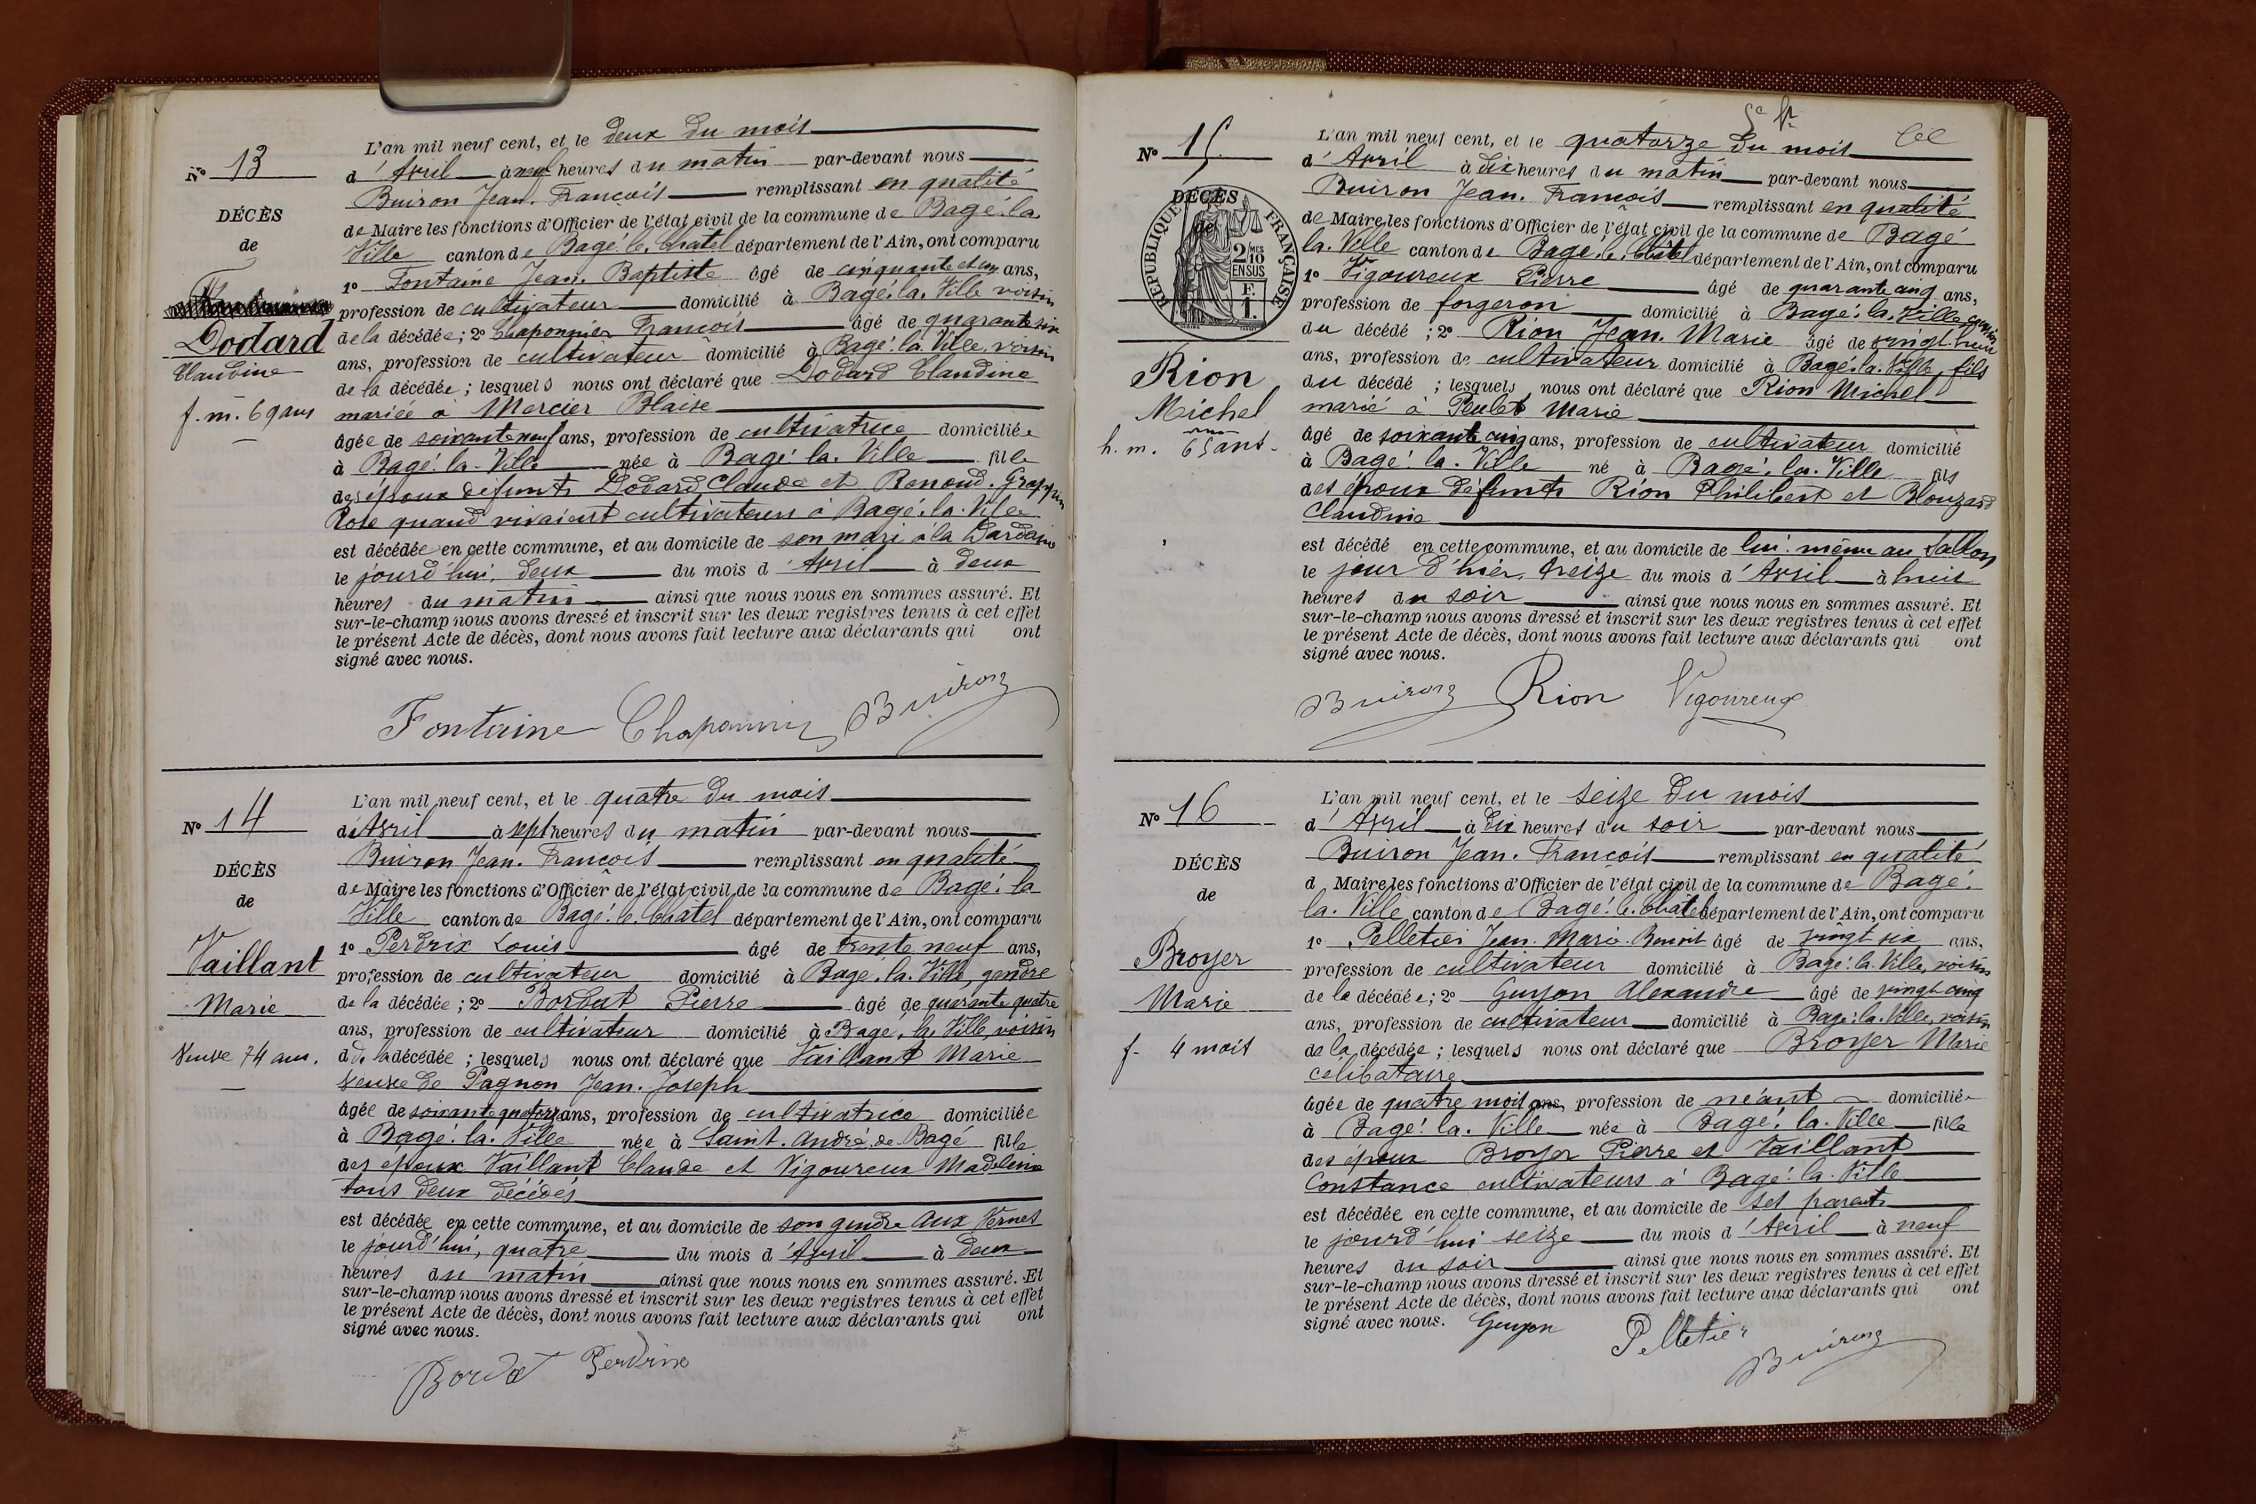 N° 13
DÉCÈS
de
Dodard
Claudine
f. m. 69 ans
L'an mil neuf cent, et le deux du mois
d'Avril à neuf heures du matin par-devant nous
Buiron Jean-François remplissant en qualité
de Maire les fonctions d'Officier de l'état civil de la commune de Bagé-la
Ville canton de Bagé-le-Chatel département de l'Ain, ont comparu
1° Fontaine Jean-Baptiste âgé de cinquante et un ans,
profession de cultivateur domicilié à Bagé-la-Ville voisin
de la décédée; 2° Chaponnier François âgé de quarante six
ans, profession de cultivateur domicilié à Bagé-la-Ville, voisin
de la décédée; lesquels nous ont déclaré que Dodard Claudine
mariée à Mercier Blaise
âgée de soixante neuf ans, profession de cultivatrice domiciliée
à Bagé-la-Ville née à Bagé-la-Ville fille
des époux défunts Dodard Claude et Renoud-Grappin
Rose quand vivaient cultivateurs à Bagé-la-Ville
est décédée en cette commune, et au domicile de son mari à la
le jourd'hui, deux du mois d'Avril à deux
heures du matin ainsi que nous nous en sommes assuré. Et
sur-le-champ nous avons dressé et inscrit sur les deux registres tenus à cet effet
le présent Acte de décès, dont nous avons fait lecture aux déclarants qui ont
signé avec nous.
Fontaine Chaponnier Buiron
N° 14
DÉCÈS
de
Vaillant
Marie
Veuve 74 ans.
L'an mil neuf cent, et le quatre du mois
d'Avril à sept heures du matin par-devant nous
Buiron Jean-François remplissant en qualité
de Maire les fonctions d'Officier de l'état civil de la commune de Bagé-la
Ville canton de Bagé-le-Chatel département de l'Ain, ont comparu
1° Perdrix Louis âgé de trente neuf ans,
profession de cultivateur domicilié à Bagé-la-Ville, gendre
de la décédée; 2° Bordat Pierre âgé de quarante quatre
ans, profession de cultivateur domicilié à Bagé-la-Ville, voisin
de la décédée; lesquels nous ont déclaré que Vaillant Marie
veuve de Pagnon Jean-Joseph
âgée de soixante quatorze ans, profession de cultivatrice domiciliée
à Bagé-la-Ville née à Saint-André-de-Bagé fille
des époux Vaillant Claude et Vigoureux Madeleine
tous deux décédés
est décédée en cette commune, et au domicile de son gendre aux Vernes
le jourd'hui, quatre du mois d'Avril à deux
heures du matin ainsi que nous nous en sommes assuré. Et
sur-le-champ nous avons dressé et inscrit sur les deux registres tenus à cet effet
le présent Acte de décès, dont nous avons fait lecture aux déclarants qui ont
signé avec nous.
Bordat Perdrix
N° 15
DÉCÈS
de
RÉPUBLIQUE FRANÇAISE
2/10 MES
EN SUS
F.
1.
Rion
Michel
h. m. 65 ans
L'an mil neuf cent, et le quatorze du mois
d'Avril à dix heures du matin par-devant nous
Buiron Jean-François remplissant en qualité
de Maire les fonctions d'Officier de l'état civil de la commune de Bagé
la-Ville canton de Bagé-le-Chatel département de l'Ain, ont comparu
1° Vigoureux Pierre âgé de quarante cinq ans,
profession de forgeron domicilié à Bagé-la-Ville cousin
du décédé; 2° Rion Jean-Marie âgé de vingt-huit
ans, profession de cultivateur domicilié à Bagé-la-Ville, fils
du décédé; lesquels nous ont déclaré que Rion Michel
marié à Peulet Marie
âgé de soixante cinq ans, profession de cultivateur domicilié
à Bagé-la-Ville né à Bagé-la-Ville fils
des époux défunts Rion Philibert et Blouzard
Claudine
est décédé en cette commune, et au domicile de lui-même au
le jour d'hier, treize du mois d'Avril à huit
heures du soir ainsi que nous nous en sommes assuré. Et
sur-le-champ nous avons dressé et inscrit sur les deux registres tenus à cet effet
le présent Acte de décès, dont nous avons fait lecture aux déclarants qui ont
signé avec nous.
Buiron Rion Vigoureux
N° 16
DÉCÈS
de
Broyer
Marie
f. 4 mois
L'an mil neuf cent, et le seize du mois
d'Avril à dix heures du soir par-devant nous
Buiron Jean-François remplissant en qualité
d Maire les fonctions d'Officier de l'état civil de la commune de Bagé-
la-Ville canton de Bagé-le-Chatel département de l'Ain, ont comparu
1° Pelletier Jean-Marie-Benoit âgé de vingt six ans,
profession de cultivateur domicilié à Bagé-la-Ville, voisin
de la décédée; 2° Guyon Alexandre âgé de vingt cinq
ans, profession de cultivateur domicilié à Bagé-la-Ville, voisin
de la décédée; lesquels nous ont déclaré que Broyer Marie
célibataire
âgée de quatre mois ans, profession de néant domiciliée
à Bagé-la-Ville née à Bagé-la-Ville fille
des époux Broyer Pierre et Vaillant
Constance cultivateurs à Bagé-la-Ville
est décédée en cette commune, et au domicile de ses parents
le jourd'hui seize du mois d'Avril à neuf
heures du soir ainsi que nous nous en sommes assuré. Et
sur-le-champ nous avons dressé et inscrit sur les deux registres tenus à cet effet
le présent Acte de décès, dont nous avons fait lecture aux déclarants qui ont
signé avec nous. Guyon Pelletier
Buiron